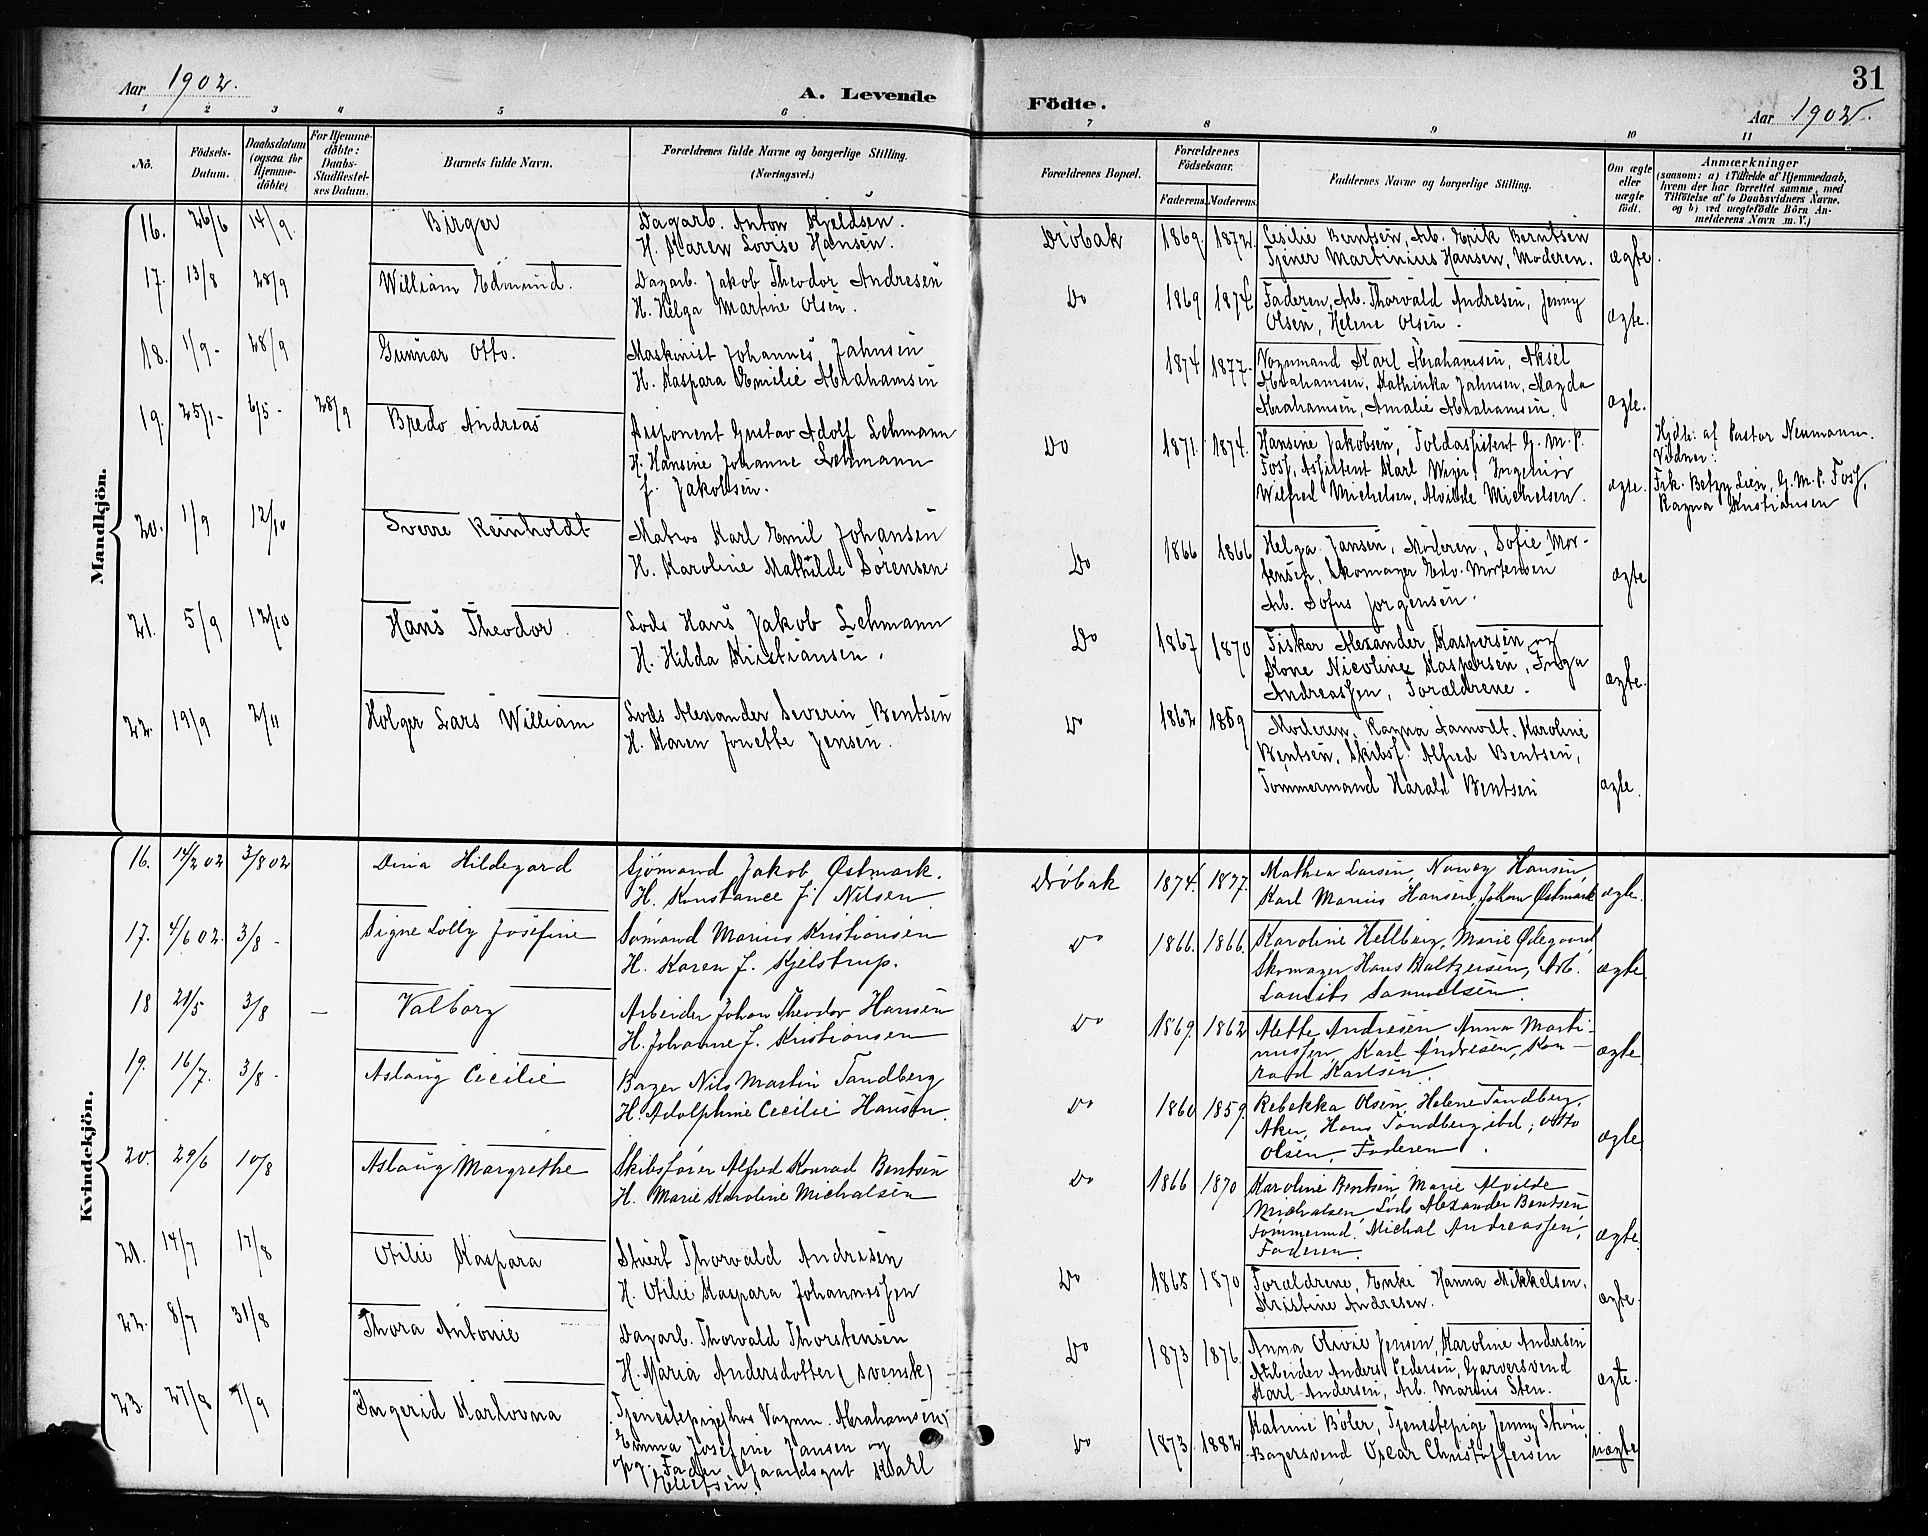 Aar 1902.
A. Levende
Födte.
31
Aar 1902.
1 2 3 4 5 6 7 8 9 10 11
No.
Födsels-Datum.
Daabsdatum (ogsaa for Hjemme-döbte)
For Hjemme-döbte: Daabs-Stadfæstel-ses Datum.
Barnets fulde Navn.
Forældrenes fulde Navne og borgerlige Stilling.
(Næringsvei.)
Forældrenes Bopæl.
Forældrenes Födselsaar.
Faderens. Moderens.
Faddernes Navne og borgerlige Stilling.
Om ægte eller uægte födt.
Anmærkninger
(saasom: a) i Tilfælde af Hjemmedaab,
hvem der har forrettet samme, med
Tilföielse af to Daabsvidners Navne.
og b) ved uægtefödte Börn An-
melderens Navn m. V.)
Mandkjön.
16. 26/6 14/9. Birger
Dagarb. Anton Kjeldsen.
H. Karen Lovise Hansen.
Drøbak 1869. 1872.
Cesilie Berntsen, Arb. Erik Berntsen
Tjener Martinius Hansen, Moderen.
ægte.
17. 13/8 28/9 William Edmund.
Dagarb. Jakob Theodor Andresen
H. Helga Martine Olsen.
Do 1869 1874.
Faderen, Arb. Thorvald Andresen, Jenny
Olsen, Helene Olsen.
ægte.
18. 1/9- 28/9 Gunnar Otto.
Maskinist Johannes Jahnsen
H. Kaspara Emilie Abrahamsen
1874 1877.
Vognmand Karl Abrahamsen, Aksel
Abrahamsen, Kathinka Jahnsen, Magda
Abrahamsen, Amalie Abrahamsen.
ægte.
19. 25/1- 6/5- 28/9 Bredo Andreas
Disponent Gustav Adolf Lehmann
H. Hansine Johanne Lehmann
f. Jakobsen.
Do 1871. 1874.
Hansine Jakobsen, Toldassistent G. M. P.
Foss, Assistent Karl Ingeniør
Wilfred Michelsen, Alvilde Michelsen.
ægte.
Hjdb: af Pastor Neumann.
Vidner:
Frk. Betzy Lien, G. M. P. Foss,
Ragna Kristiansen
20. 1/9 12/10 Sverre Reinholdt
Matros Karl Emil Johansen
H. Karoline Mathilde Sørensen
Do 1866 1866
Helga Jansen, Moderen, Sofie Mor-
tensen, Skomager Edv. Mortensen
Arb. Sofus Jørgensen.
ægte
21. 5/9 12/10 Hans Theodor.
Lods Hans Jakob Lehmann
H. Hilda Kristiansen.
Do 1867 1870
Fisker Alexander Kaspersen og
Kone Nicoline Kaspersen, Inga
Andreassen, Forældrene.
ægte.
22. 19/9 2/11 Holger Lars William
Lods Alexander Severin Bentsen
H. Maren Jonette Jensen.
Do 1862 1859
Moderen, Ragna Tamodt, Karoline
Bentsen, Skibsf. Alfred Bentsen,
Tømmermand Harald Bentsen
ægte.
Kvindekjön.
16. 14/2 02 3/8 02 Dina Hildegard
Sjømand Jakob Østmark.
H. Konstance f. Nilsen
Drøbak 1874. 1877.
Mathea Larsen, Nancy Hansen
Karl Marius Hansen, Johan Østmark
ægte.
17. 4/6 02. 3/8- Signe Lolly Josefine
Sømand Marius Kristiansen
H. Karen f. Kjelstrup.
Do 1866. 1866.
Karoline Hellberg, Marie Ødegaard,
Skomager Hans Baltzersen, Arb.
Laurits Samuelsen.
ægte
18 21/5 3/8 — Valborg
Arbeider Johan Theodor Hansen
H. Johanne f. Kristiansen
Do 1869. 1862
Alette Andresen Anna Marti-
nussen, Karl Andresen, Kon-
rad Karlsen.
ægte.
19. 16/7. 3/8- Aslaug Cecilie
Bager Nils Martin Tandberg
H. Adolphine Cecilie Hansen.
Do 1860 1859.
Rebekka Olsen, Helene Tandberg,
Aker, Hans Tandberg ibd; Otto
Olsen, Faderen.
ægte.
20. 29/6 10/8 Aslaug Margrethe
Skibsfører Alfred Konrad Bentsen
H. Marie Karoline Michalsen
Do 1866 1870
Karoline Bentsen, Marie Alvilde
Michalsen, Lods Alexander Bentsen,
tømmermd. Michal Andreassen,
Faderen.
ægte.
21. 14/7 17/8 Otilie Kaspara
Stuert Thorvald Andresen
H. Otilie Kaspara Johannessen
Do 1865 1870
Forældrene, Enke Hanna Mikkelsen,
Kristine Andresen.
ægte.
22. 8/7 31/8 Thora Antonie
Dagarb. Thorvald Thorstensen
H. Maria Andersdotter (svensk)
Do 1873 1876.
Anna Olivie Jensen, Karoline Andersen
Arbeider Anders Pedersen, Garversvend
Karl Andersen, Arb. Martin Sten.
ægte.
23. 27/8 7/9 Ingerid Karlovna
Tjenestepige hos Vognm. Abrahamsen,
Emma Josefine Jansen og
opg. Fader Gaardsgut Karl
Ellefsen.
Do 1873. 1882.
Katrine Bøler, Tjenestepige Jenny Strøm,
Bagersvend Oscar Christoffersen
uægte